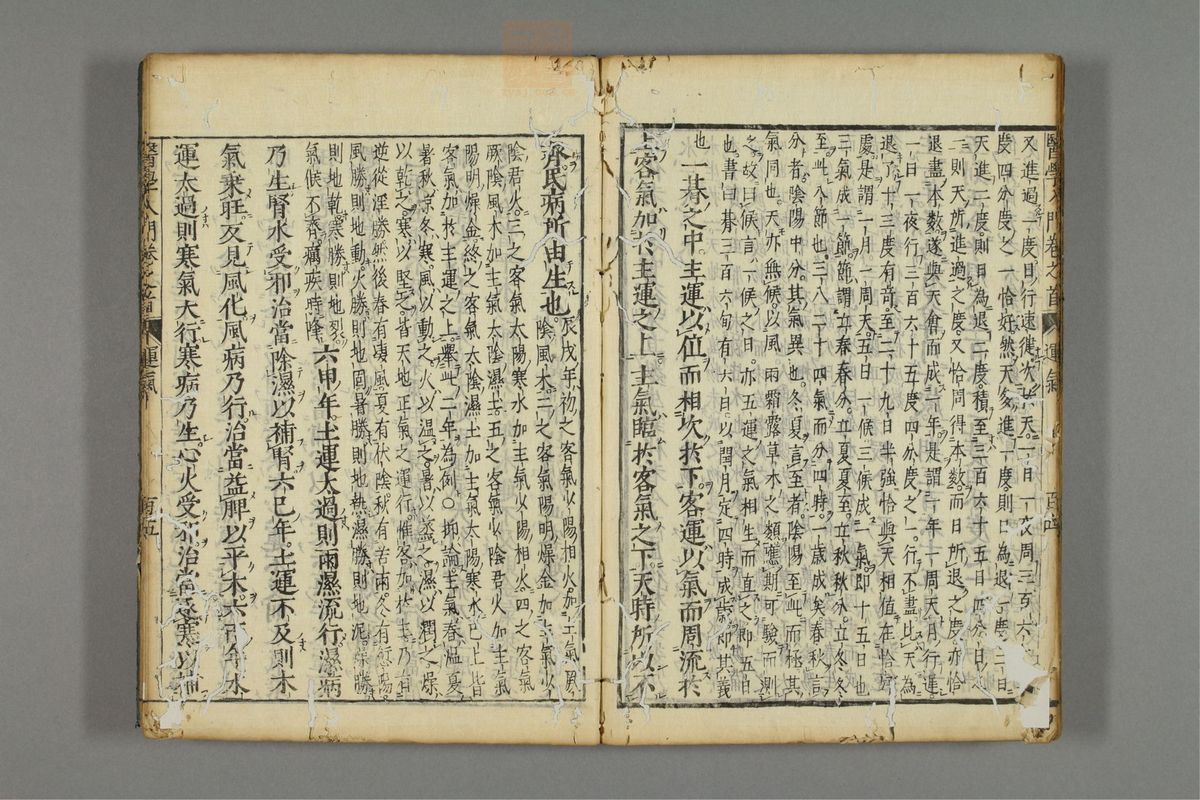 醫學入門卷之首 運氣 百四
又進過一度日行速健次於天一日一夜周三百六十五
度四分度之一恰好然天多進一度則日為退一度二日
天進二度則日為退二度積至三百六十五日四分日之
一則天所進過之度又恰周得本數而日所退之度亦恰
退盡本數遂與天會而成一年是謂一年一周天月行遲
一日一夜行三百六十五度四分度之一行不盡比天為
退了十三度有奇至二十九日半強恰與天相值在恰好
處是謂一月一周天五日一候三候成一氣即十五日也
三氣成一節節謂立春春分立夏夏至立秋秋分立冬冬
至此八節也三八二十四氣而分四時一歲成矣春秋言
分者陰陽中分其氣異也冬夏言至者陰陽至此而極其
氣同也天亦無候以風雨霜露草木之類應期可驗而測
之故曰候言一候之日亦五運之氣相生而直之即五日
也書曰朞三百六旬有六日以閏月定四時成歲即其義
也 一朞之中主運以位而相次於下客運以氣而周流於
上客氣加於主運之上主氣臨於客氣之下天時所以不
齊民病所由生也 辰戌年初之客氣少陽相火加主氣厥
陰風木二之客氣陽明燥金加主氣少
陰君火三之客氣太陽寒水加主氣少陽相火四之客氣
厥陰風木加主氣太陰濕土五之客氣少陰君火加主氣
陽明燥金終之客氣太陰濕土加主氣太陽寒水已上皆
客氣加於主運之上舉此二年為例○抑論主氣春溫夏
暑秋凉冬寒風以動之火以溫之暑以蒸之濕以潤之燥
以乾之寒以堅之皆天地正氣之運行惟客加於主乃有
逆從淫勝然後春有凄風夏有伏陰秋有苦雨冬有愆陽
風勝則地動火勝則地固暑勝則地熱濕勝則地泥燥勝
則地乾寒勝則地裂
氣候不齊癘疾時降 六甲年土運太過則雨濕流行濕病
乃生腎水受邪治當除濕以補腎六巳年土運不及則木
氣乘旺反見風化風病乃行治當益脾以平木六丙年水
運太過則寒氣大行寒病乃生心火受邪治當逐寒以補
醫學入門 運氣 百五